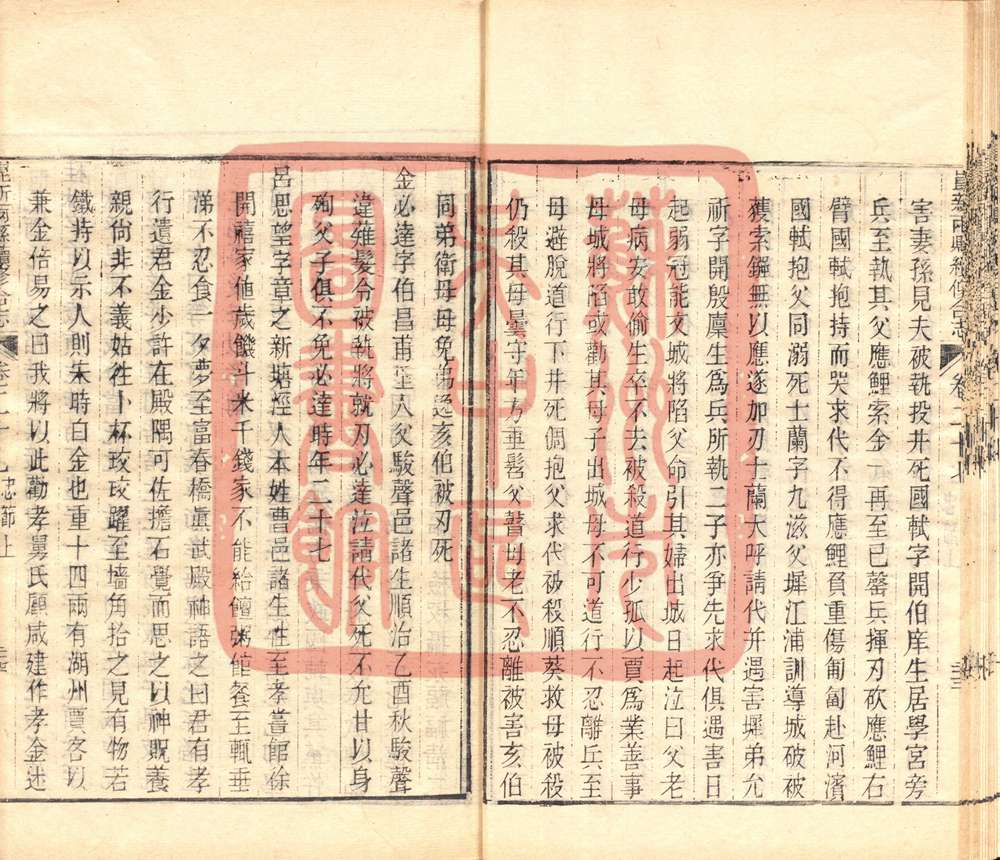 害妻孫見夫被執投井死國軾字開伯庠生居學宮旁
兵至執其父應鯉索金一再至已罄兵揮刃砍應鯉右
臂國軾抱持而哭求代不得應鯉負重傷匍匐赴河濱
國軾抱父同溺死士蘭字九滋父墀江浦訓導城破被
獲索鏹無以應遂加刃士蘭大呼請代并遇害墀弟允
祈字開殷廩生爲兵所執二子亦爭先求代俱遇害日
起弱冠能文城將陷父命引其婦出城日起泣曰父老
母病安敢偷生卒不去被殺道行少孤以賈爲業善事
母城將陷或勸其母子出城母不可道行不忍離兵至
母避脫道行下井死倜抱父求代被殺順葵救母被殺
仍殺其母曇守年方垂髫父瞽母老不忍離被害亥伯
同弟衛母母免弟逸亥伯被刃死
金必達字伯昌甫里人父駿聲邑諸生順治乙酉秋駿聲
違薙髮令被執將就刃必達泣請代父死不允甘以身
殉父子俱不免必達時年二十七
呂思望字章之新塘涇人本姓曹邑諸生性至孝嘗館徐
開禧家他歲饑斗米千錢家不能給饘粥館餐至輒垂
涕不忍食一夕夢至富春橋眞武殿神語之曰君有孝
行遺君金少許在殿隅可佐擔石覺而思之以神貺養
親倘非不義姑往卜杯珓珓躍至墻角拾之見有物若
鐵持以示人則朱時白金也重十四兩有湖州賈客以
兼金倍易之曰我將以此勸孝舅氏顧咸建作孝金述